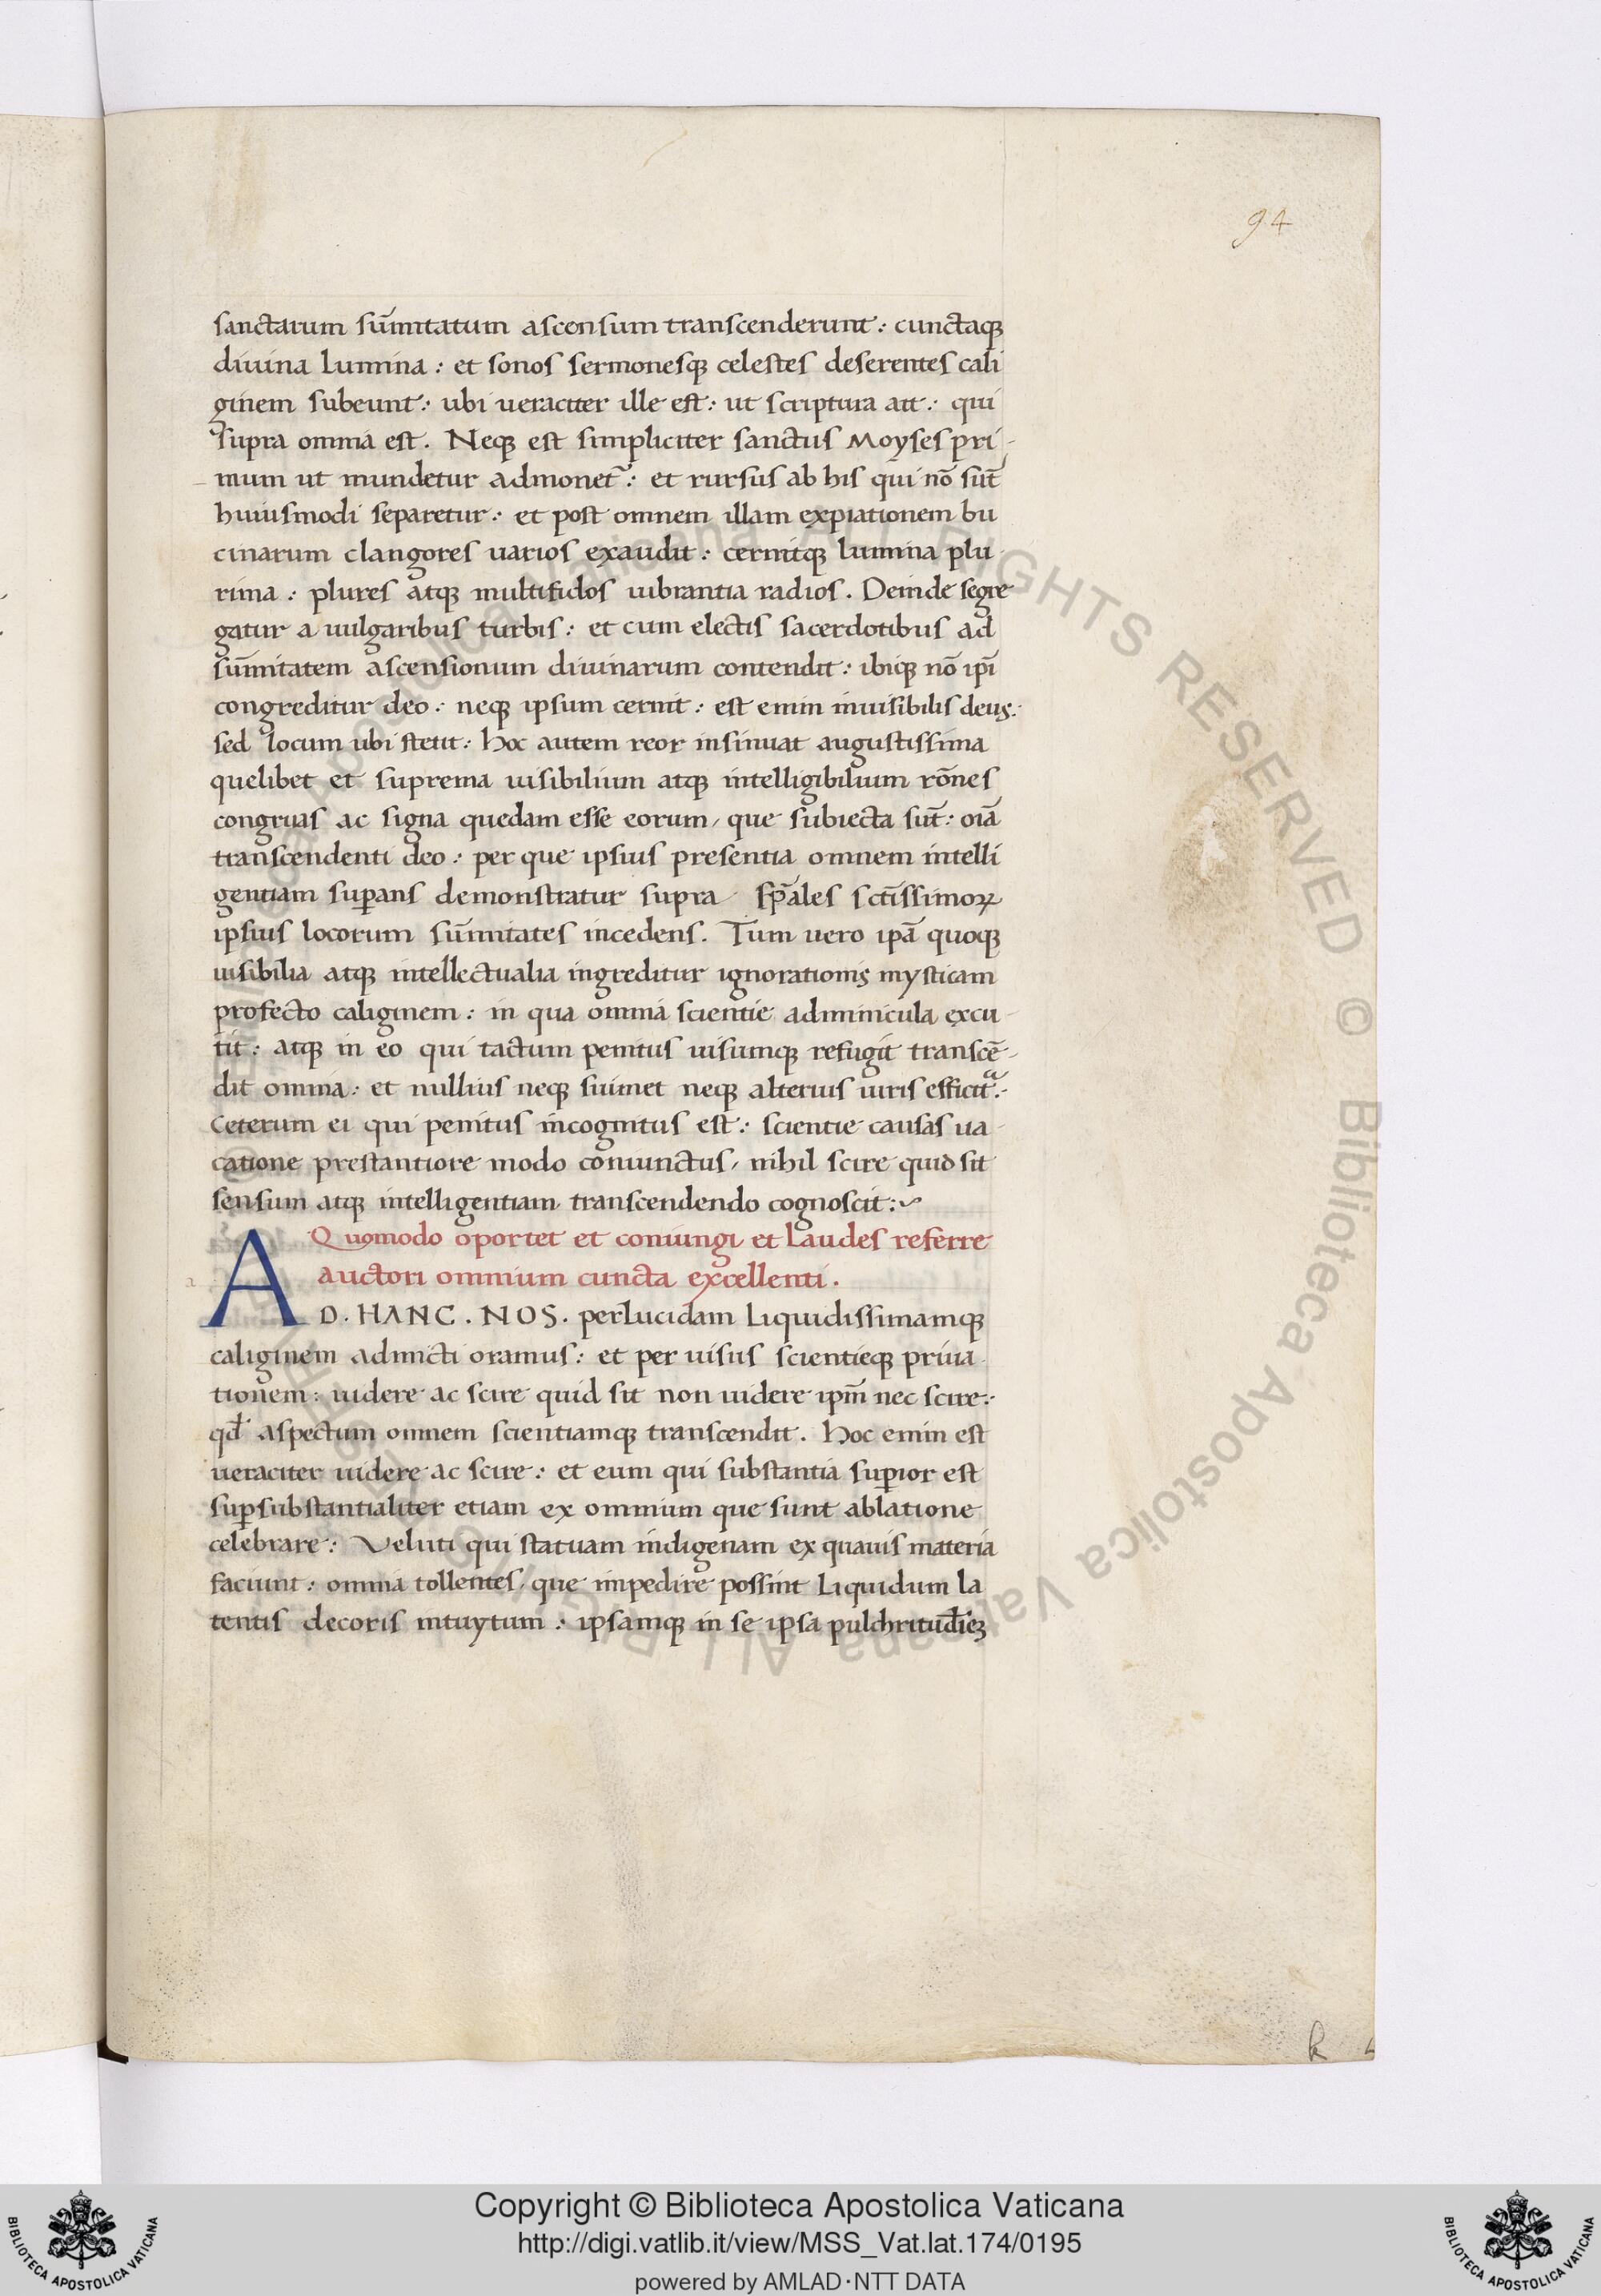 94
sanctarum sūmitatum ascensum transcenderunt: cunctaqꝫ
diuina lumina: et sonos sermonesqꝫ celestes deserentes cali
ginem subeunt: ubi ueraciter ille est: ut scriptura ait: qui
supra omnia est. Neqꝫ est simpliciter sanctus Moyses pri-
mum ut mundetur admonet᷑: et rursus ab his qui nō sūt
huiusmodi separetur: et post omnem illam expiationem bu
cinarum clangores uarios exaudit: cernitqꝫ lumina plu-
rima: plures atqꝫ multifidos uibrantia radios. Deinde segre
gatur a uulgaribus turbis: et cum electis sacerdotibus ad
sūmitatem ascensionum diuinarum contendit: ibiqꝫ nō ip̄i
congreditur deo: neqꝫ ipsum cernit: est enim inuisibilis deus:
sed locum ubi stetit: Hoc autem reor insinuat augustissima
quelibet et suprema uisibilium atqꝫ intelligibilium rōnes
congruas ac signa quedam esse eorum, que subiecta sūt: oīa
transcendenti deo: per que ipsius presentia omnem intelli
gentiam sup̄ans demonstratur supra sp̄ales sctīssimoꝝ
ipsius locorum sūmitates incedens. Tum uero ip̄a quoqꝫ
uisibilia atqꝫ intellectualia ingreditur ignorationis mysticam
profecto caliginem: in qua omnia scientie adminicula excu-
tit: atqꝫ in eo qui tactum penitus uisumqꝫ refugit transcē-
dit omnia: et nullius neqꝫ suimet neqꝫ alterius iuris efficit᷑:
Ceterum ei qui penitus incognitus est: scientie causas ua-
catione prestantiore modo coniunctus, nihil scire quid sit
sensum atqꝫ intelligentiam transcendendo cognoscit:~
Quomodo oportet et coniungi et laudes referre
auctori omnium cuncta excellenti.
AD. HANC. NOS. perlucidam liquidissimamqꝫ
caliginem adnicti oramus: et per uisus scientieqꝫ priua-
tionem: uidere ac scire quid sit non uidere ip̄m nec scire:
qd̄ aspectum omnem scientiamqꝫ transcendit. Hoc enim est
ueraciter uidere ac scire: et eum qui substantia sup̄ior est
sup̄substantialiter etiam ex omnium que sunt ablatione
celebrare: Veluti qui statuam indigenam ex quauis materia
faciunt: omnia tollentes, que impedire possint liquidum la
tentis decoris intuytum: ipsamqꝫ in se ipsa pulchritud̄ieꝫ
k
© Biblioteca Apostolica Vaticana ALL RIGHTS RESERVED © Biblioteca Apostolica Vaticana ALL RIGHTS RESERVED
Copyright © Biblioteca Apostolica Vaticana
http://digi.vatlib.it/view/MSS_Vat.lat.174/0195
powered by AMLAD·NTT DATA
BIBLIOTECA APOSTOLICA VATICANA
BIBLIOTECA APOSTOLICA VATICANA